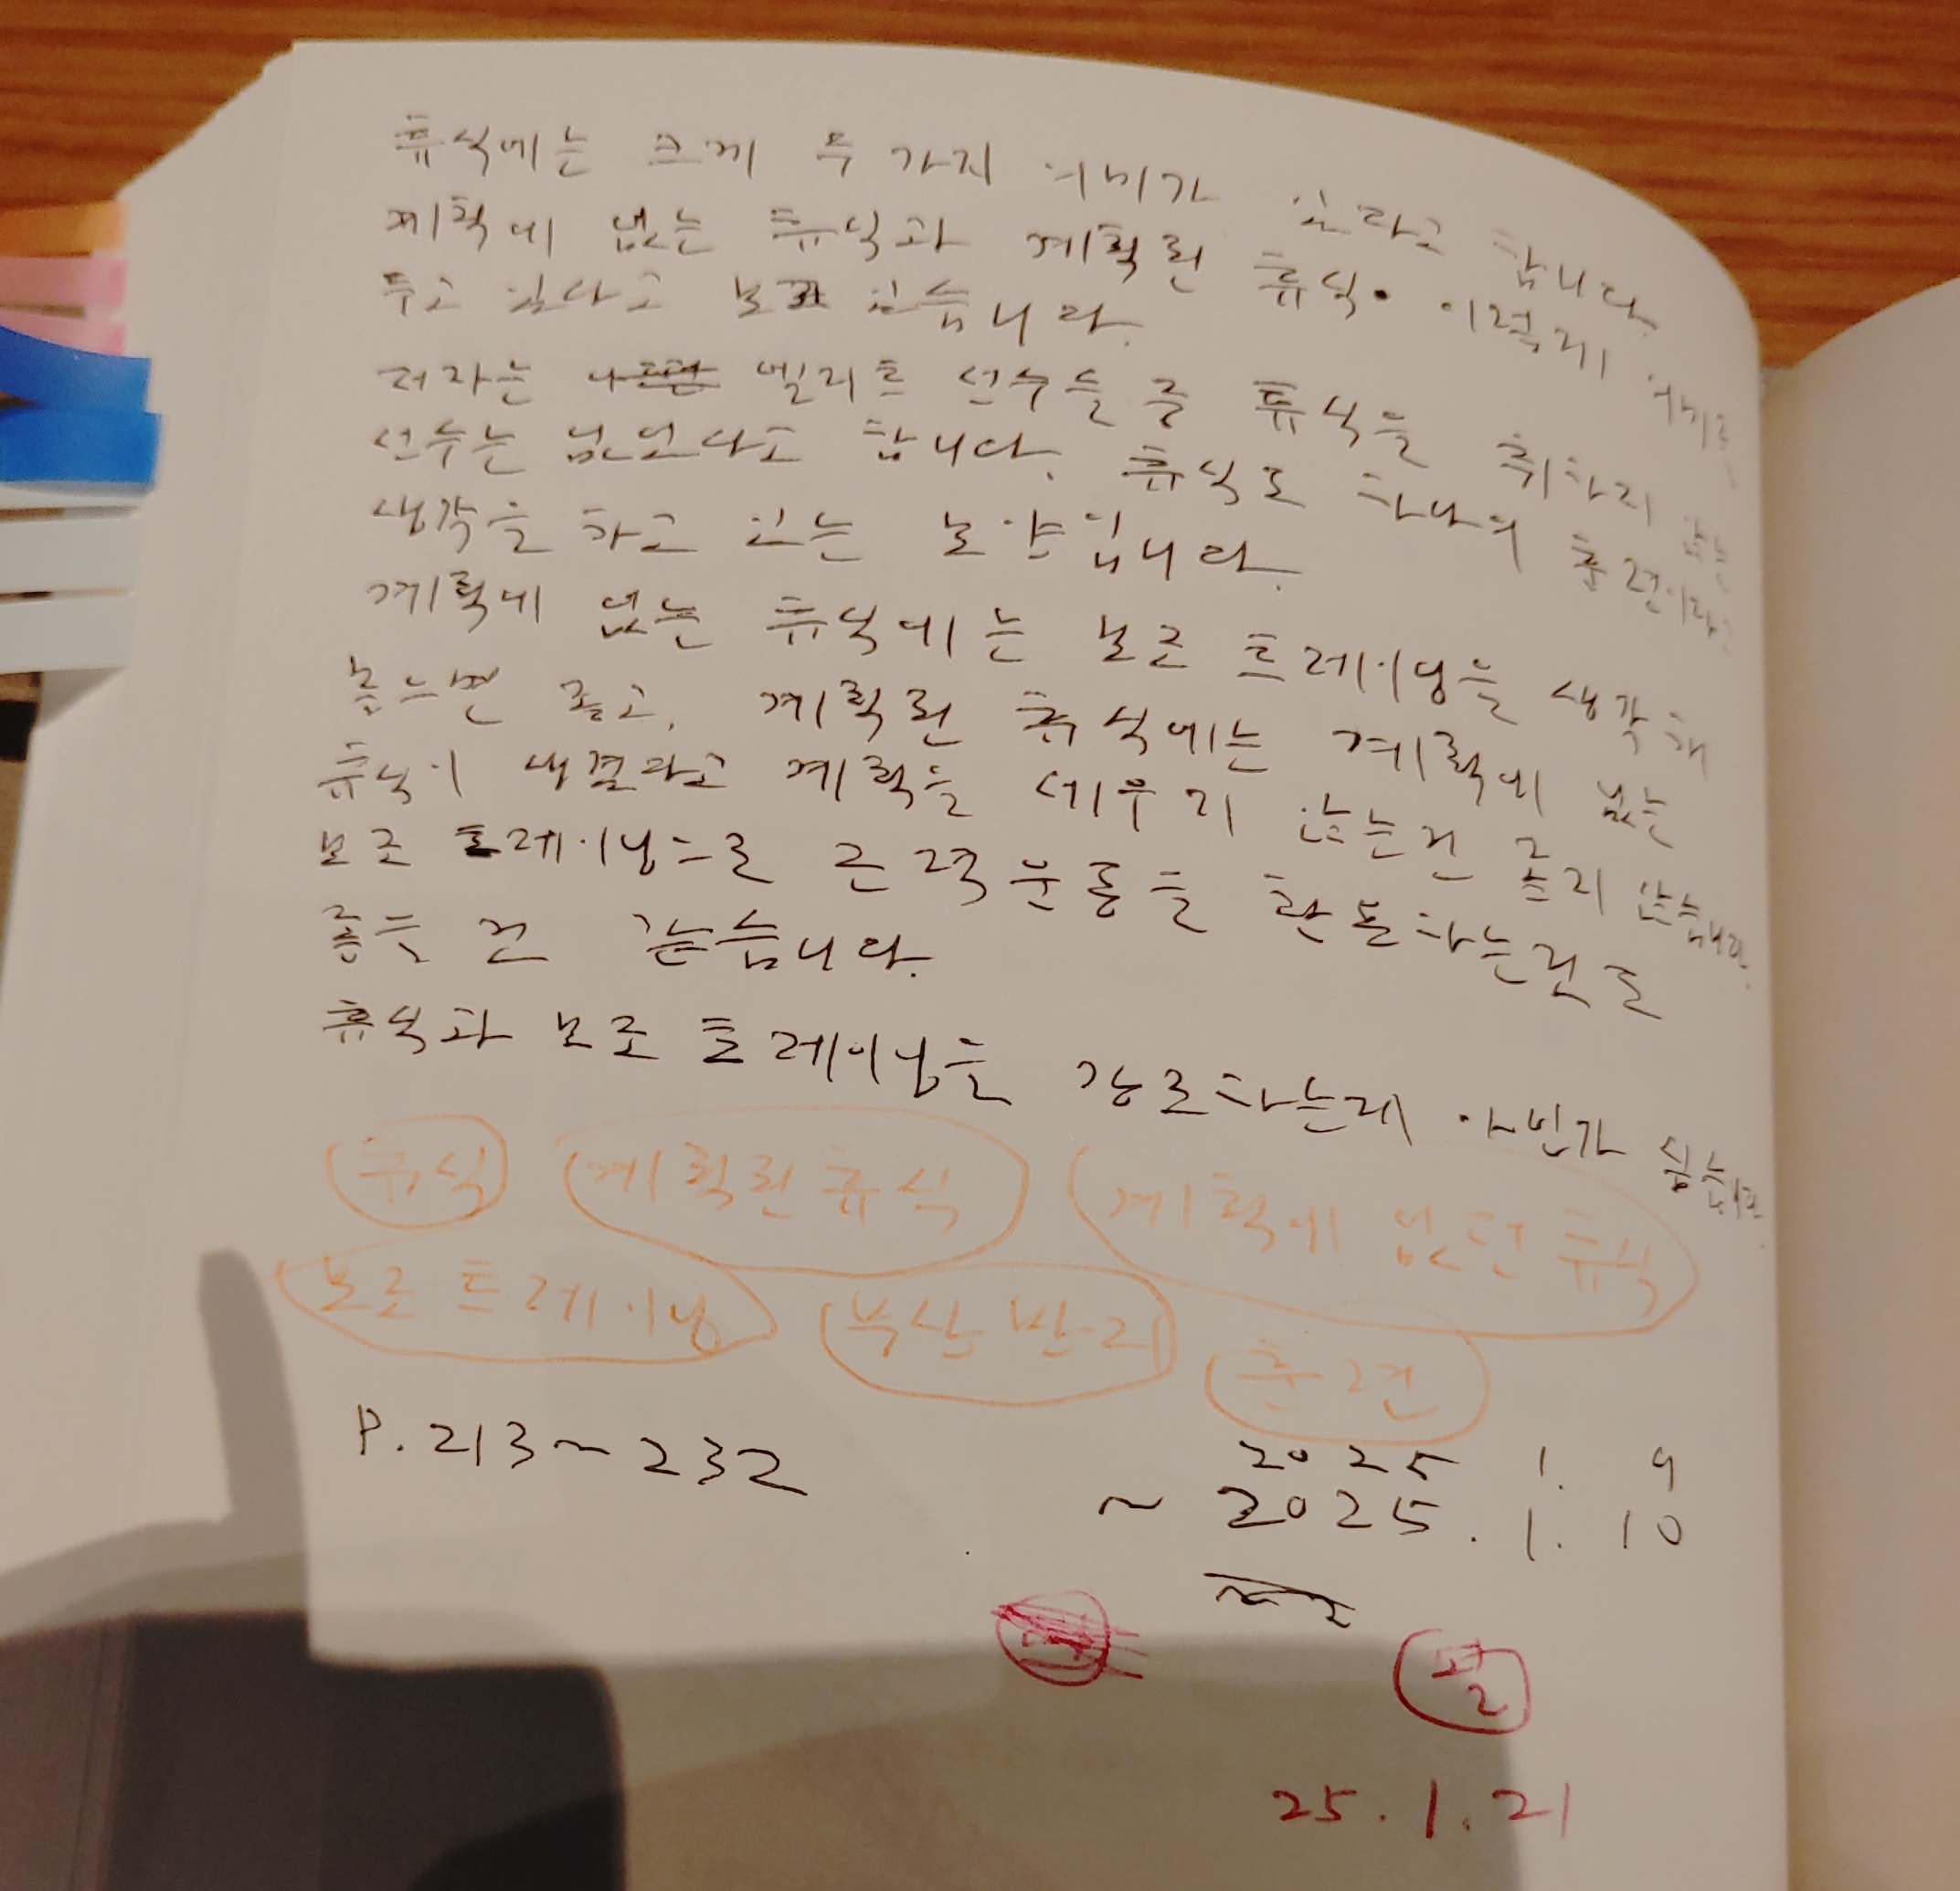 휴식에는 크게 두 가지 의미가 있다고 합니다.
계획에 없는 휴식과 계획된 휴식. 이렇게 의미를
두고 있다고 보고 있습니다.
저자는 엘리트 선수들 중 휴식을 취하지 않는
선수는 없었다고 합니다. 휴식도 하나의 훈련이라고
생각을 하고 있는 모양입니다.
계획에 없는 휴식에는 보조 트레이닝을 생각해
놓으면 좋고, 계획된 휴식에는 계획에 없는
휴식이 생겼다고 계획을 세우지 않는건 좋지 않습니다.
보조 트레이닝으로 근력운동을 환돈하는것도
좋은 건 같습니다.
휴식과 보조 트레이닝을 강조하는게 아닌가 싶습니다.
휴식 계획된 휴식 계획에 없던 휴식
보조 트레이닝 부상 반리 훈련
P. 213~232
2025 1. 9
~ 2025. 1. 10
필
25. 1. 21